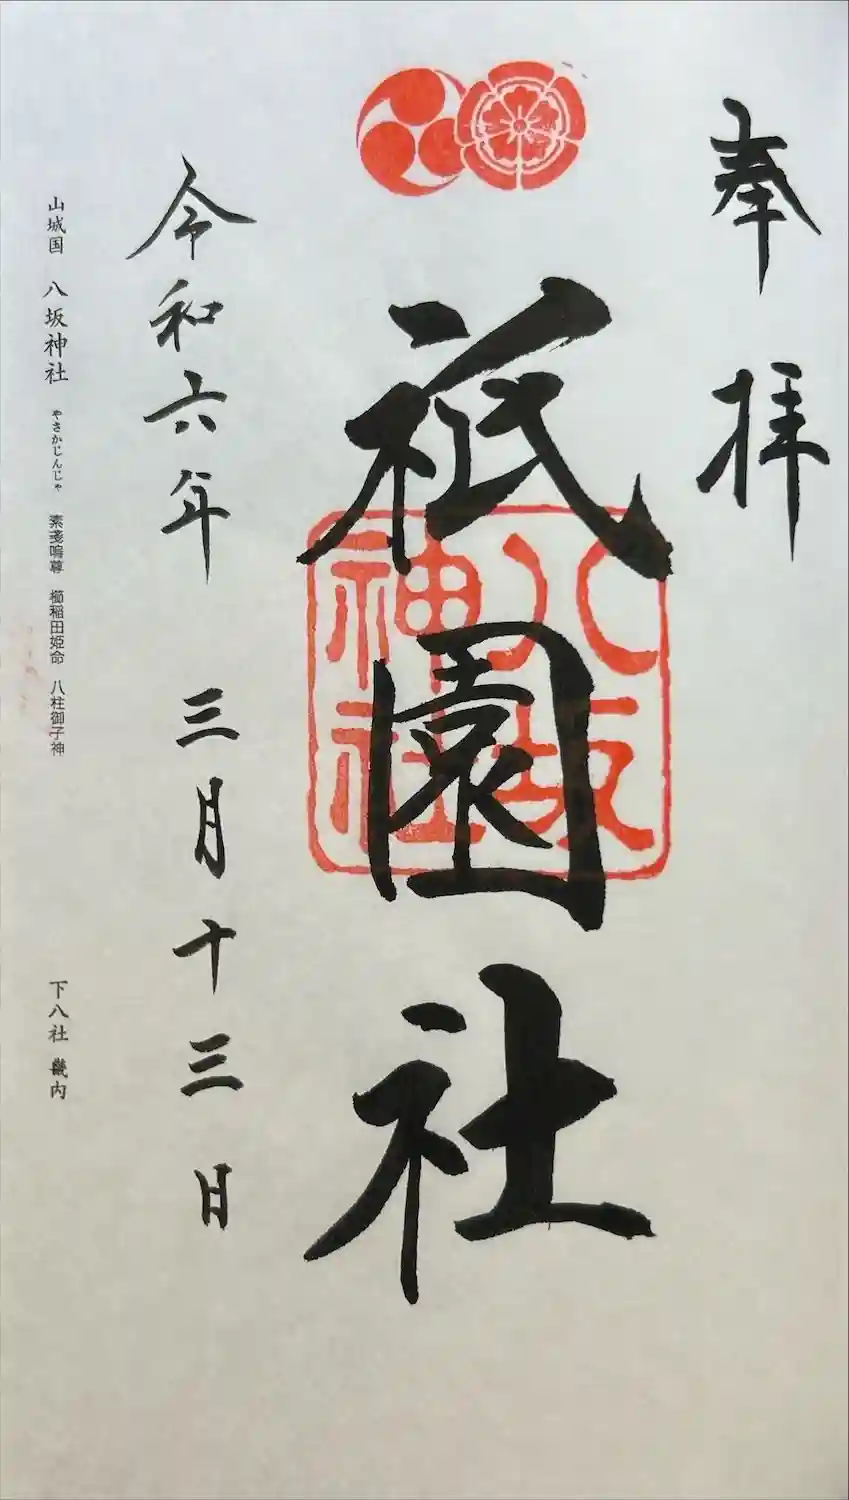 奉拝
祇園社
八坂
神社
令和六年 三月十三日
山城国 八坂神社 やさかじんじゃ 素戔嗚尊 櫛稲田姫命 八柱御子神 下八社 畿内